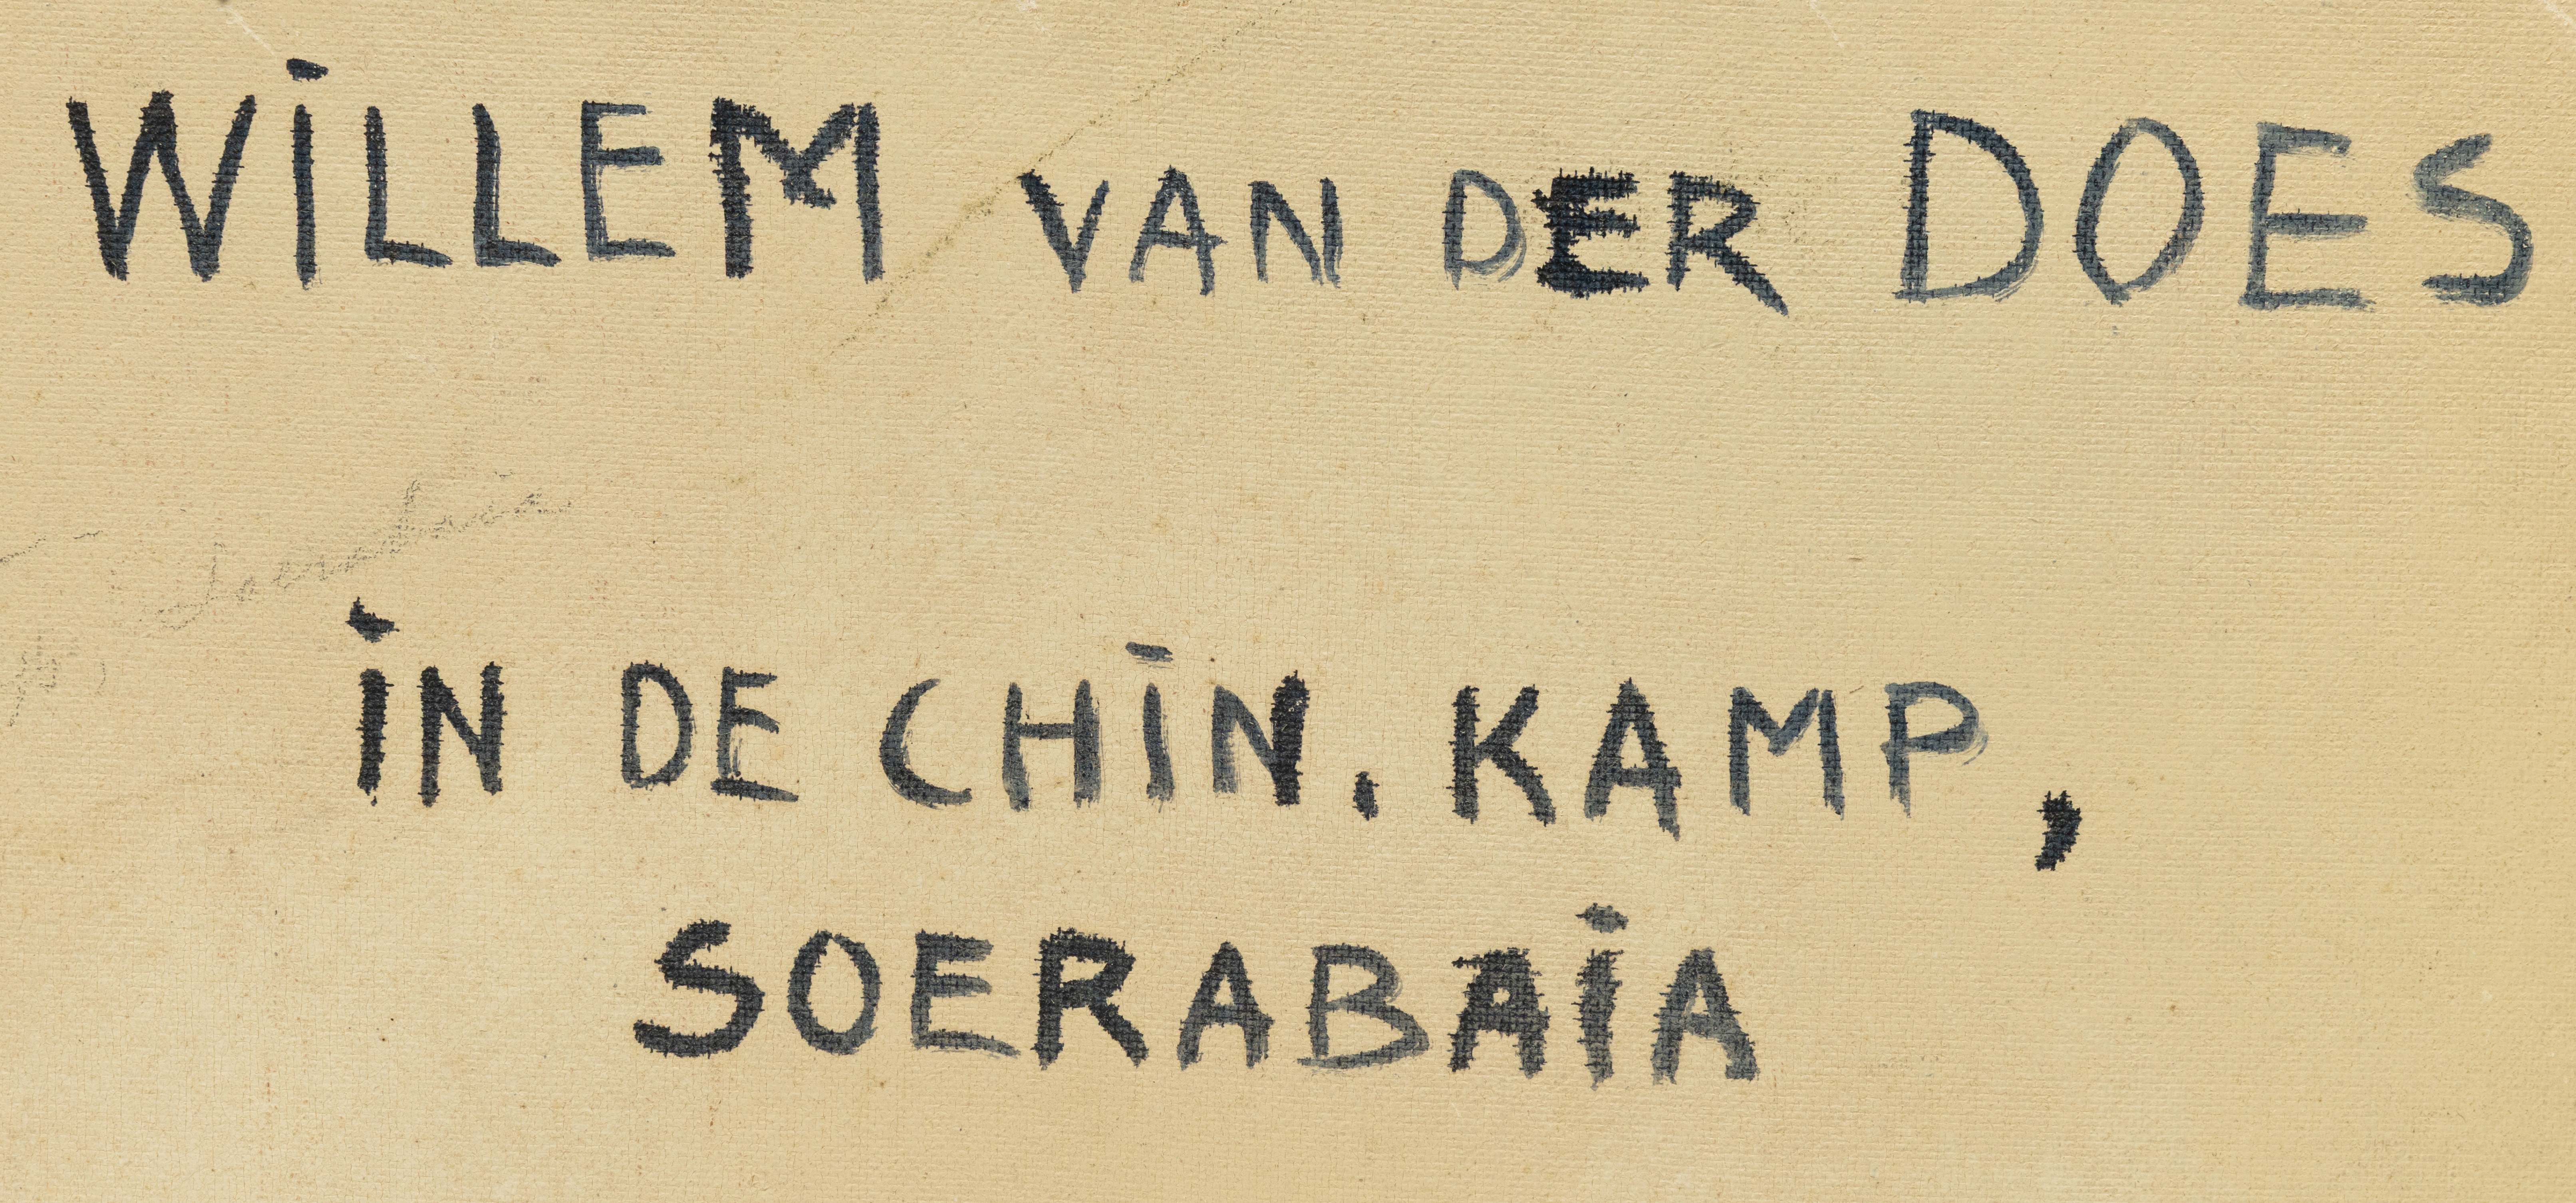 WiLLEM VAN DER DOES
Soerabaia
iN DE CHiN. KAMP,
SOERABAiA